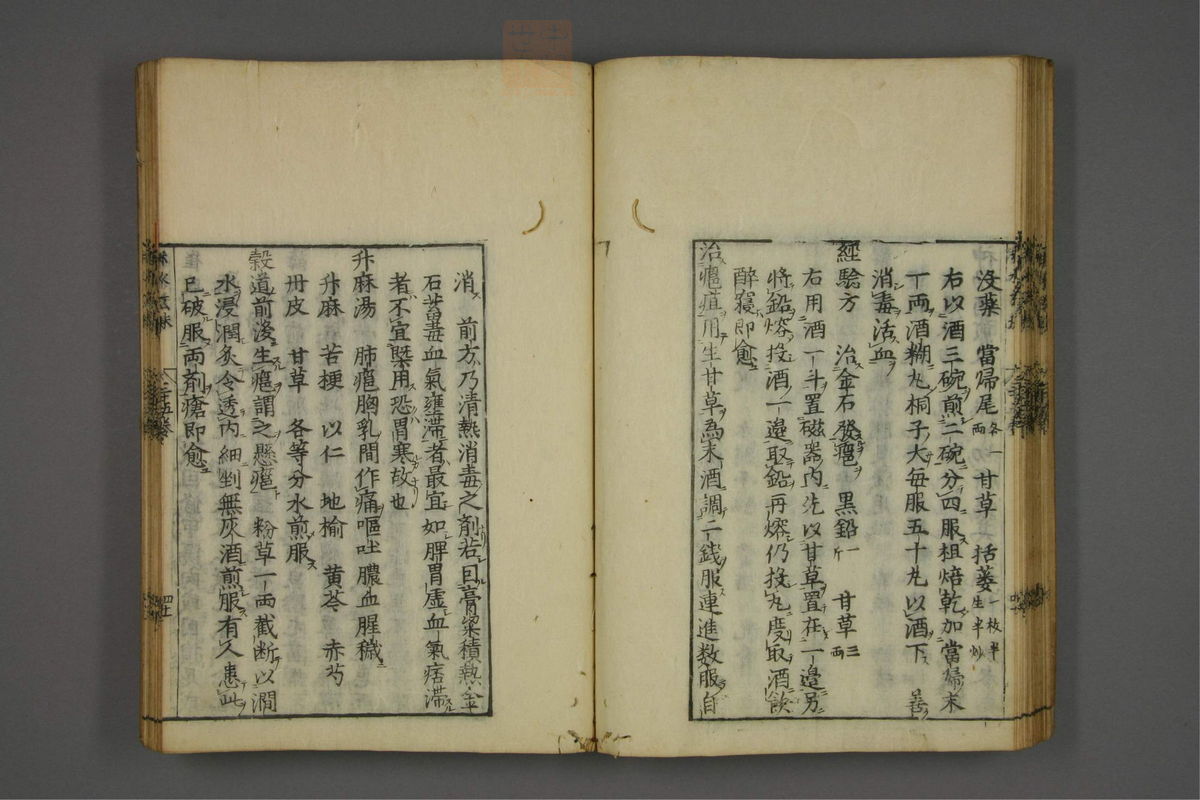 没藥　當歸尾各一兩　甘草　括蔞一枚半生半炒
右以酒三碗煎二碗分四服粗焙乾加當歸末
一兩酒糊丸桐子大每服五十丸以酒下　善
消毒活血
經驗方　治金石發癰　黑鉛一斤　甘草三兩
右用酒一斗置磁器內先以甘草置在一邊另
將鉛熔投酒一邊取鉛再熔仍投九度取酒飲
醉寢即愈
治癰疽用生甘草為末酒調二錢服連進数服自
消　前方乃清熱消毒之劑若曰膏粱積熱金
石蓄毒血氣壅滯者最宜如脾胃虛血氣痞滯
者不宜槩用恐胃寒故也
升麻湯　肺癰胸乳間作痛嘔吐膿血腥穢
升麻　苦梗　以仁　地榆　黄芩　赤芍
丹皮　甘草　各等分水煎服
穀道前後生癰謂之懸癰　粉草一兩截断以澗
水浸潤炙令透內細剉無灰酒煎服有久患此
已破服两劑瘡即愈